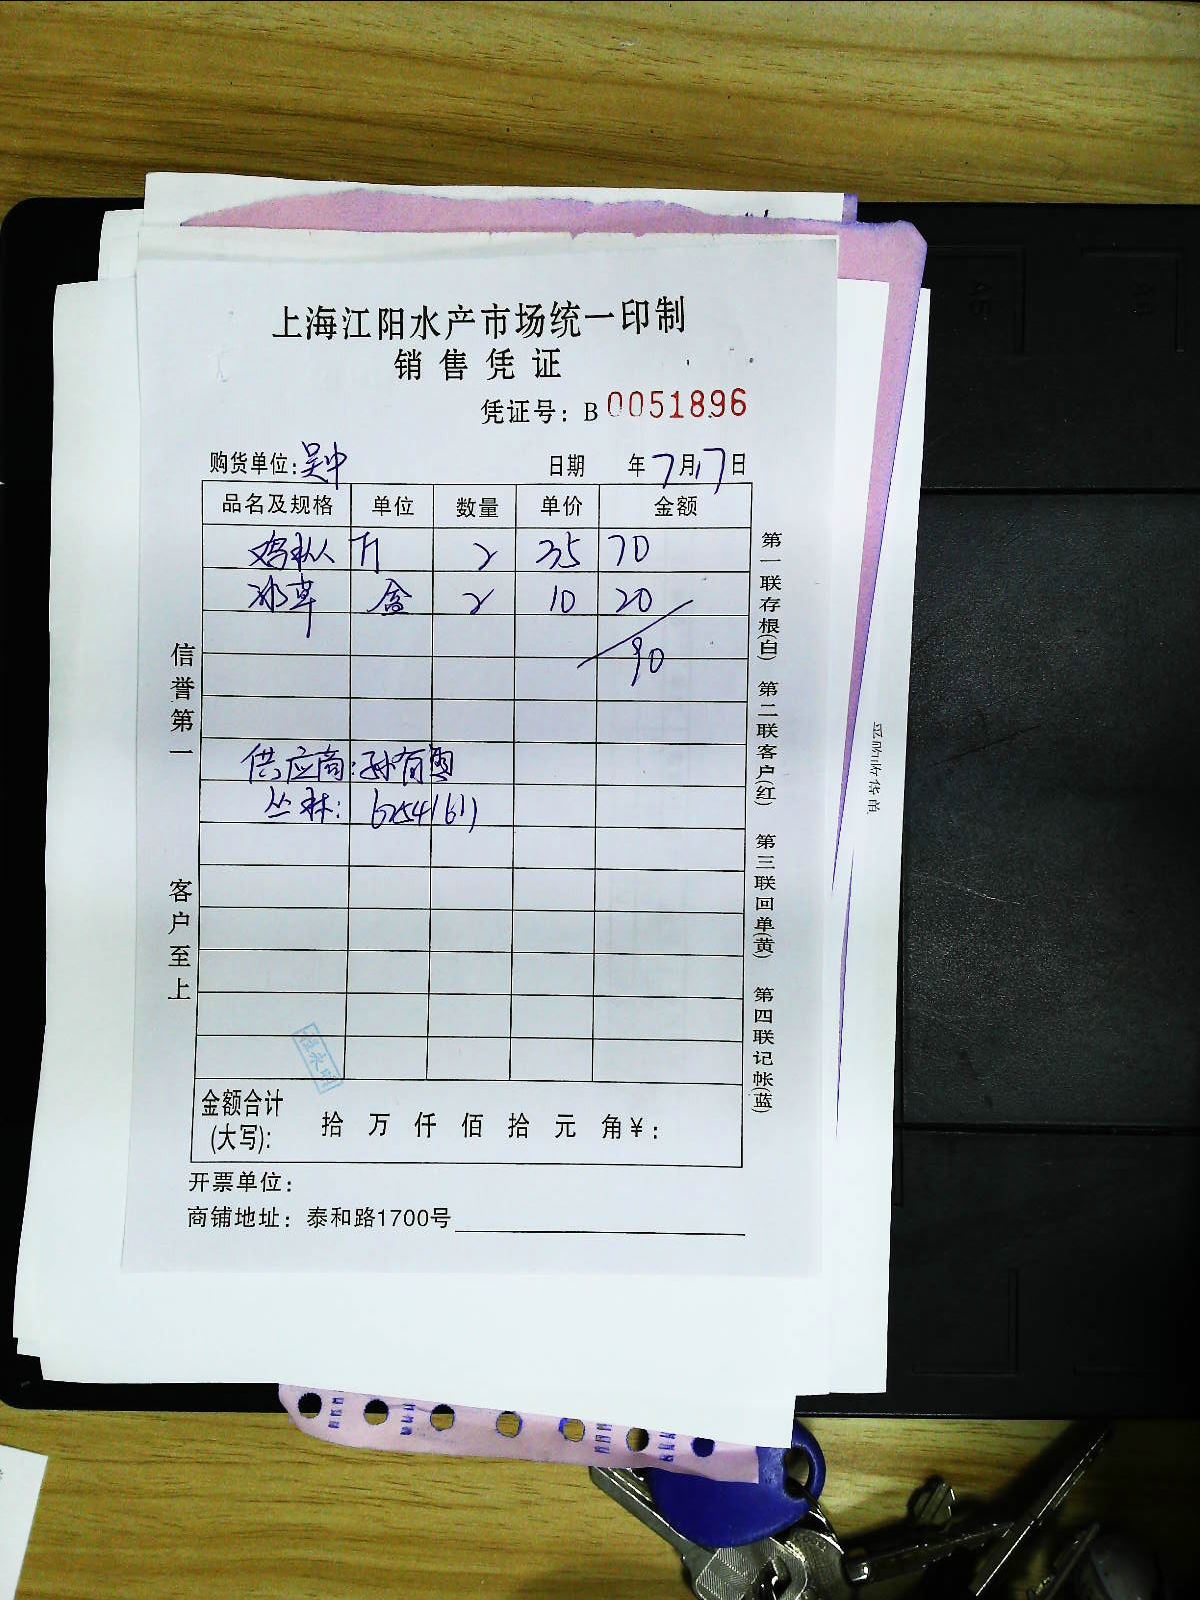 上海江阳水产市场统一印制
销售凭证
凭证号：B 0051896
购货单位：吴中 日期 年7月17日
品名及规格 单位 数量 单价 金额
鸡枞 斤 2 35 70
冰草 盒 2 10 20
90
供应商：孙有国
丛林：62541611
金额合计
(大写)： 拾 万 仟 佰 拾 元 角 ¥：
开票单位：
商铺地址：泰和路1700号
信誉第一
客户至上
第一联存根(白) 第二联客户(红) 第三联回单(黄) 第四联记帐(蓝)